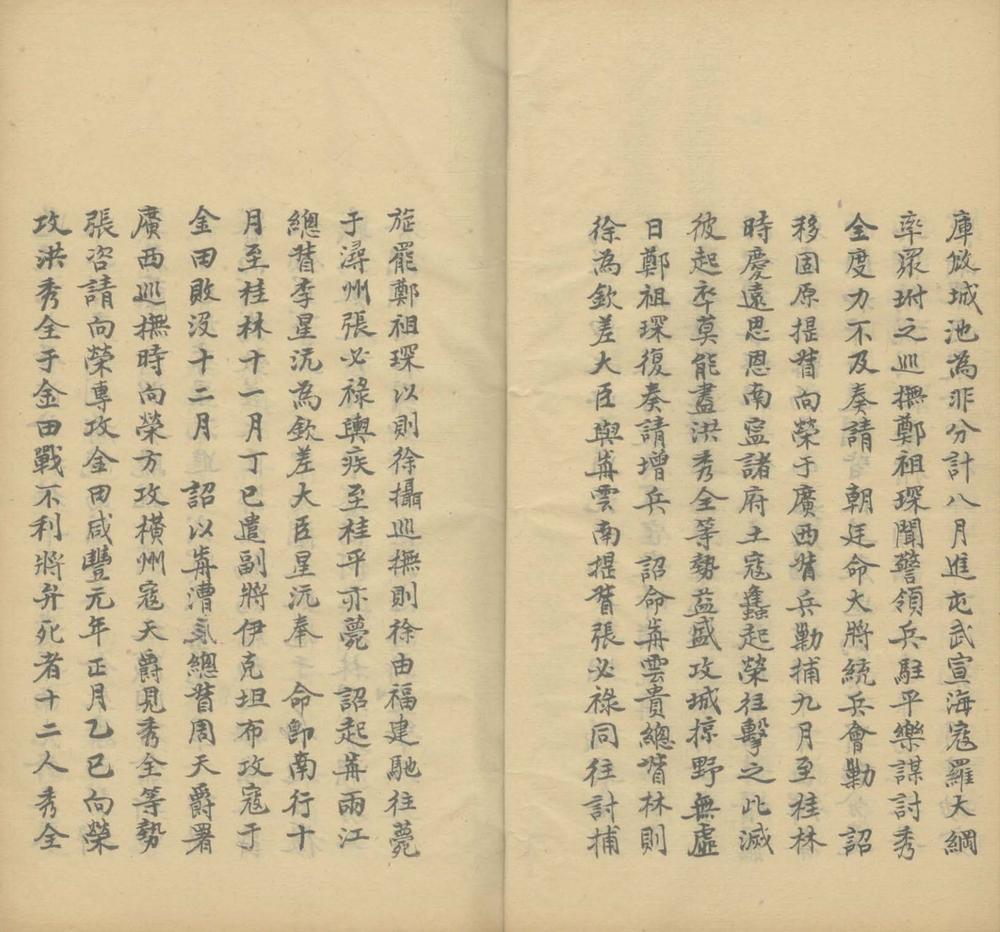 庫傚城池為非分計八月進屯武宣海寇羅大綱
率眾坿之巡撫鄭祖琛聞警領兵駐平樂謀討秀
全度力不及奏請　朝廷命大將統兵會勦　詔
移固原提督向榮于廣西督兵勦捕九月至桂林
時慶遠思恩南寍諸府土寇蠭起榮往擊之此滅
彼起卒莫能盡洪秀全等勢益盛攻城掠野無虛
日鄭祖琛復奏請增兵　詔命前雲貴總督林則
徐為欽差大臣與前雲南提督張必祿同往討捕
旋罷鄭祖琛以則徐攝巡撫則徐由福建馳往薨
于潯州張必祿輿疾至桂平亦薨　詔起前兩江
總督李星沅為欽差大臣星沅奉　命卽南行十
月至桂林十一月丁巳遣副將伊克坦布攻寇于
金田敗沒十二月　詔以前漕運總督周天爵署
廣西巡撫時向榮方攻橫州寇天爵見秀全等勢
張咨請向榮專攻金田咸豐元年正月乙巳向榮
攻洪秀全于金田戰不利將弁死者十二人秀全